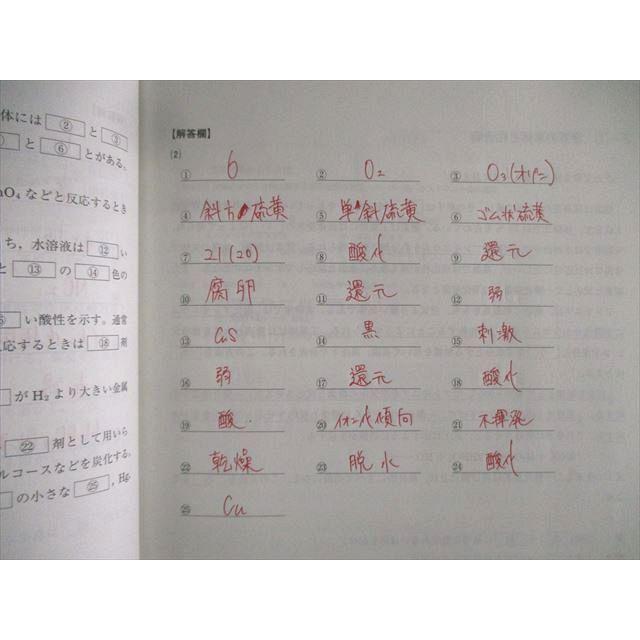 体には ② と ③
と ⑥ とがある。
nO₄ などと反応するとき
ち，水溶液は ⑫ い
と ⑬ の ⑭ 色の
い酸性を示す。通常
応するときは ⑱ 剤
が H₂ より大きい金属
㉒ 剤として用いら
ルコースなどを炭化する。
の小さな ㉕ , Hg
【解答欄】
(2)
① 6 ② O₂ ③ O₃(オゾン)
④ 斜方硫黄 ⑤ 単斜硫黄 ⑥ ゴム状硫黄
⑦ 21(20) ⑧ 酸化 ⑨ 還元
⑩ 腐卵 ⑪ 還元 ⑫ 弱
⑬ CuS ⑭ 黒 ⑮ 刺激
⑯ 弱 ⑰ 還元 ⑱ 酸化
⑲ 酸 ⑳ イオン化傾向 ㉑ 不揮発
㉒ 乾燥 ㉓ 脱水 ㉔ 酸化
㉕ Cu